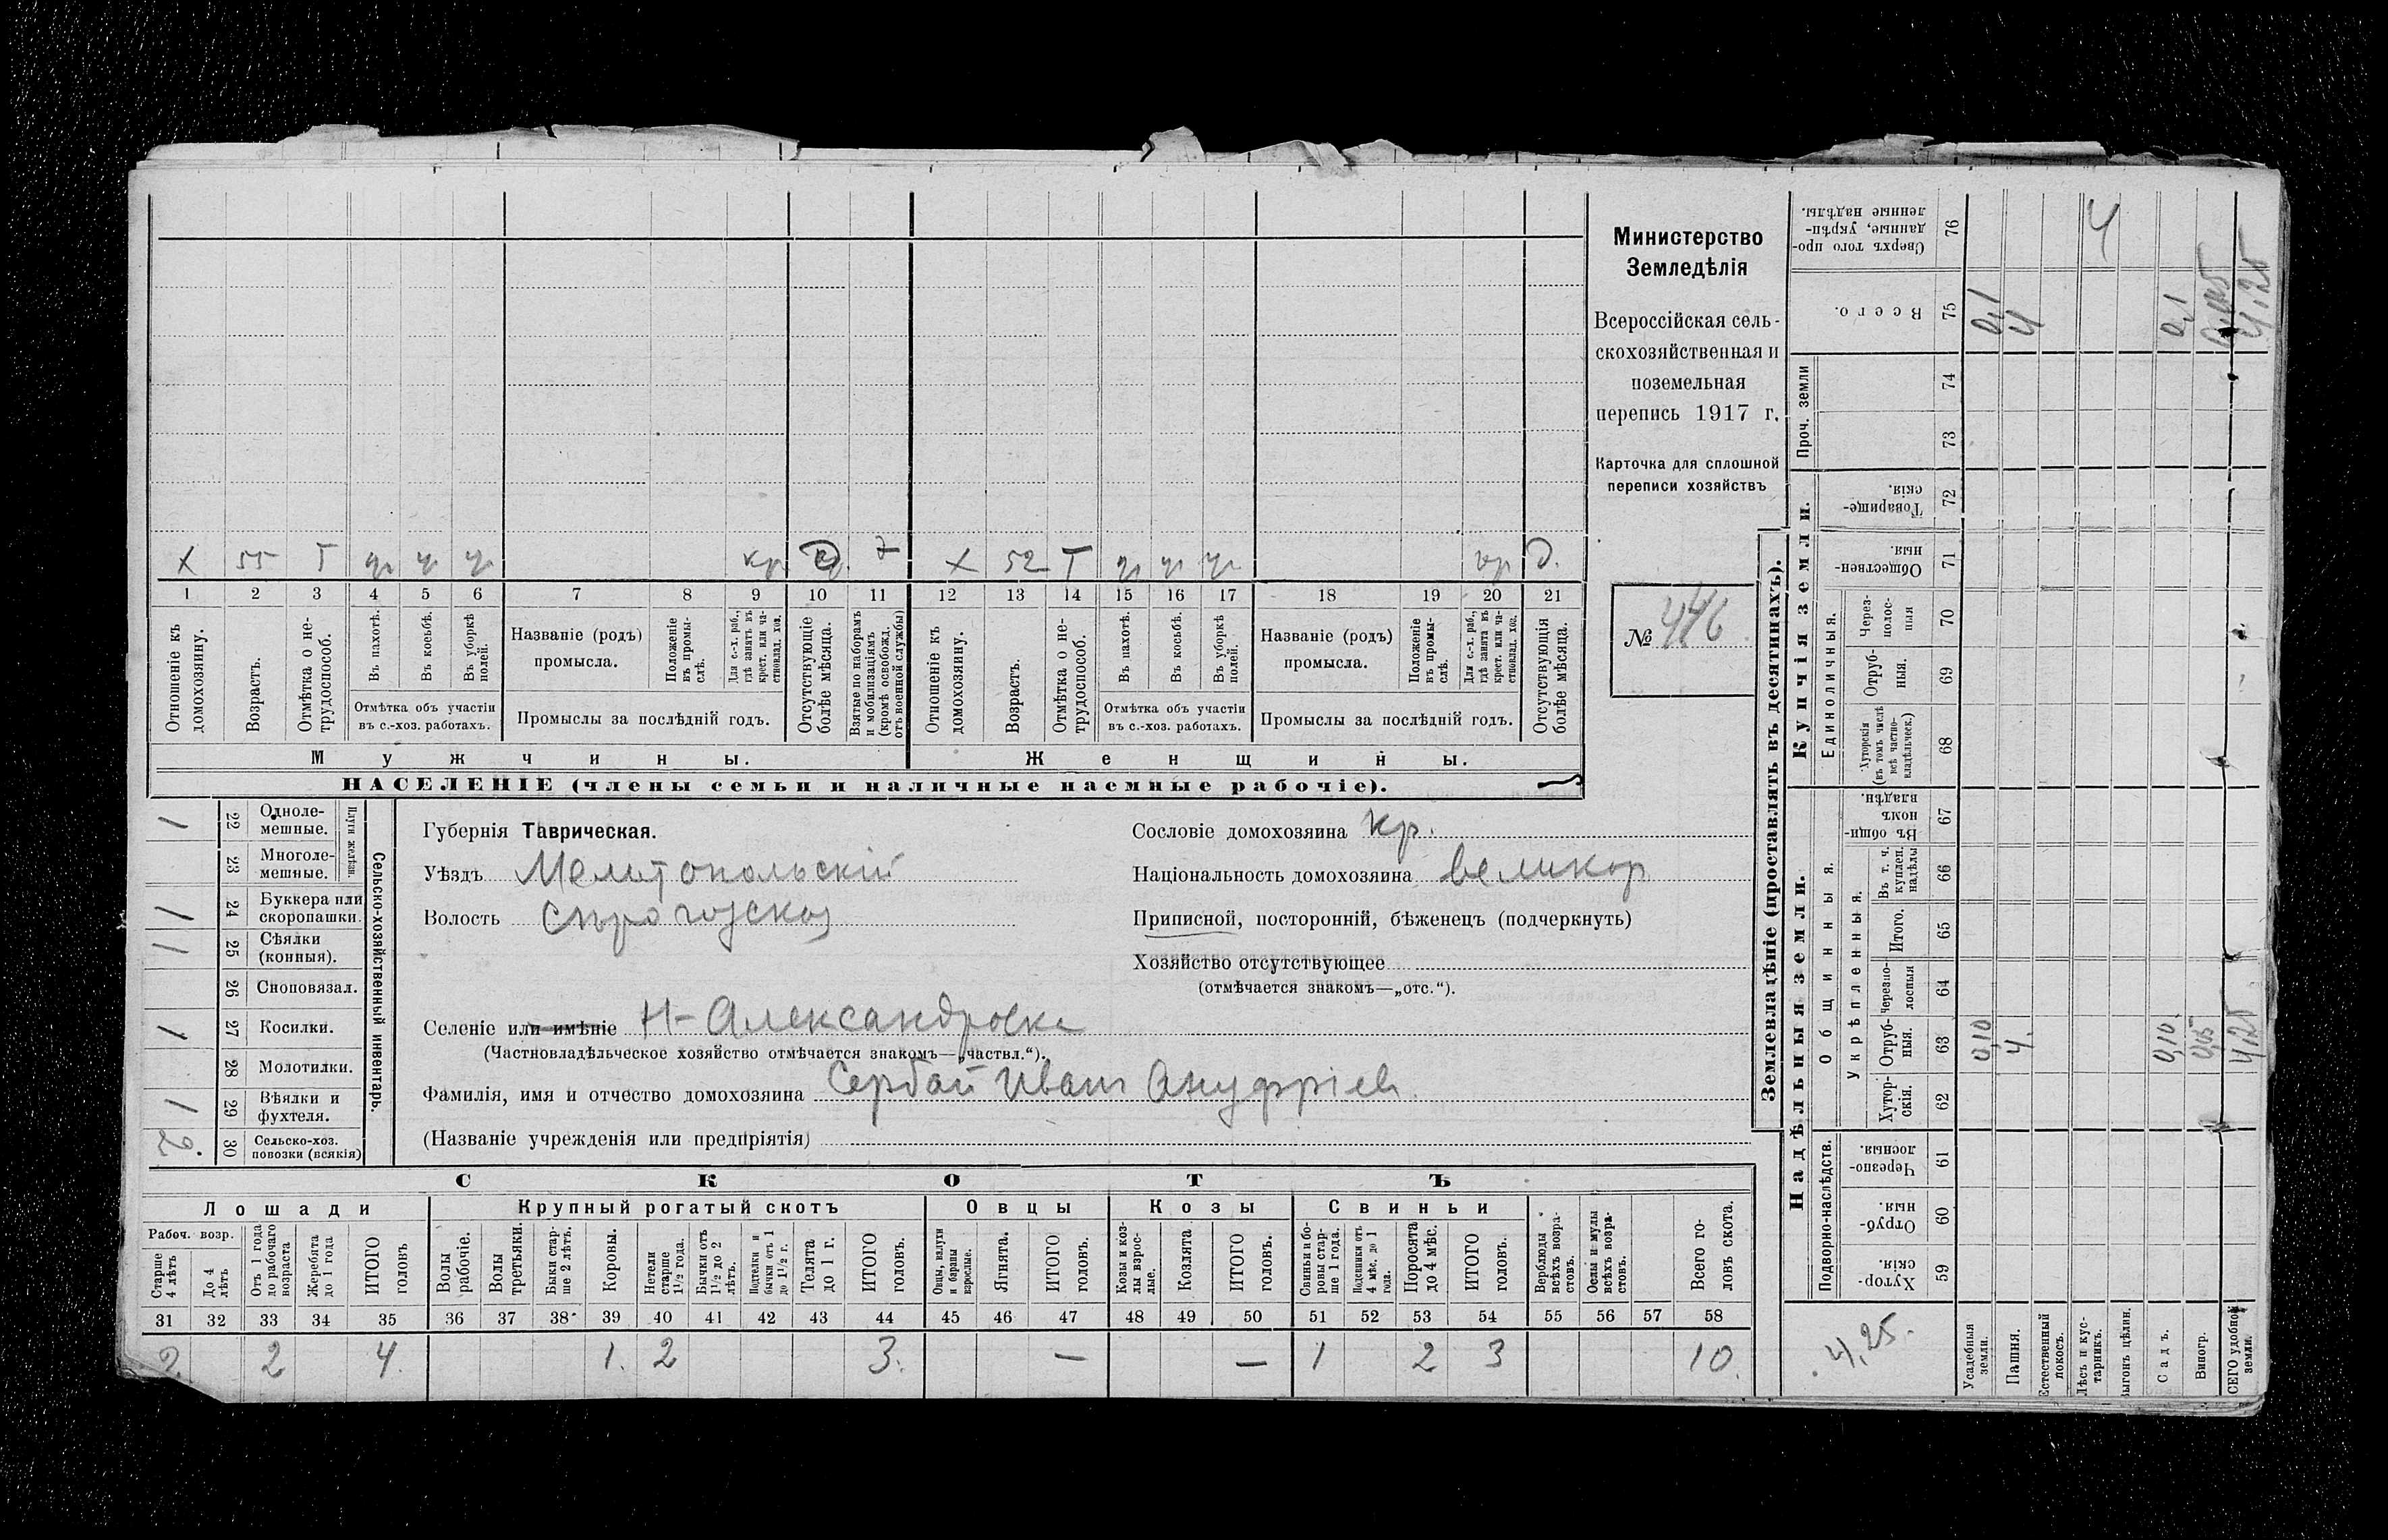 Министерство
Земледѣлія
Всероссійская сель-
скохозяйственная и
поземельная
перепись 1917 г.
Карточка для сплошной
переписи хозяйствъ
№ 446
х 55 Т кр. 7 х 52 Т кр д.
1 2 3 4 5 6 7 8 9 10 11 12 13 14 15 16 17 18 19 20 21
Отношеніе къ домохозяину.
Возрастъ.
Отмѣтка о не-трудоспособ.
Въ пахотѣ.
Въ косьбѣ.
Въ уборкѣ полей.
Отмѣтка объ участіи
въ с.-хоз. работахъ.
Названіе (родъ)
промысла.
Положеніе въ промы-слѣ.
Для с.-х. раб., гдѣ занятъ въ крест. или ча-стновлад. хоз.
Промыслы за послѣдній годъ.
Отсутствующіе болѣе мѣсяца.
Взятые по наборамъ и мобилизаціямъ (кромѣ освобожд. отъ военной службы)
Отношеніе къ домохозяину.
Возрастъ.
Отмѣтка о не-трудоспособ.
Въ пахотѣ.
Въ косьбѣ.
Въ уборкѣ полей.
Отмѣтка объ участіи
въ с.-хоз. работахъ.
Названіе (родъ)
промысла.
Положеніе въ промы-слѣ.
Для с.-х. раб., гдѣ занята въ крест. или ча-стновлад. хоз.
Промыслы за послѣдній годъ.
Отсутствующія болѣе мѣсяца.
Мужчины. Женщины.
НАСЕЛЕНІЕ (члены семьи и наличные наемные рабочіе).
Сельско-хозяйственный инвентарь.
Плуги желѣзн
1 22 Одноле-мешные.
23 Многоле-мешные.
1 24 Буккера или скоропашки.
1 25 Сѣялки (конныя).
26 Сноповязал.
1 27 Косилки.
28 Молотилки.
1 29 Вѣялки и фухтеля.
2. 30 Сельско-хоз. повозки (всякія)
Губернія Таврическая.
Уѣздъ Мелитопольскій
Волость
Селеніе или имѣніе Н-Александровка
(Частновладѣльческое хозяйство отмѣчается знакомъ—„частвл.“).
Фамилія, имя и отчество домохозяина Сербай Иван Ануфріев.
(Названіе учрежденія или предпріятія)
Сословіе домохозяина кр.
Національность домохозяина великор
Приписной, посторонній, бѣженецъ (подчеркнуть)
Хозяйство отсутствующее
(отмѣчается знакомъ—„отс.“).
СКОТЪ
Лошади Крупный рогатый скотъ Овцы Козы Свиньи
Рабоч. возр.
Старше 4 лѣтъ
До 4 лѣтъ
Отъ 1 года до рабочаго возраста
Жеребята до 1 года
ИТОГО головъ
Волы рабочіе.
Волы третьяки.
Быки стар-ше 2 лѣтъ.
Коровы.
Нетели старше 1½ года.
Бычки отъ 1½ до 2 лѣтъ.
Подтелки и бычки отъ 1 до 1½ г.
Телята до 1 г.
ИТОГО головъ.
Овцы, валухи и бараны взрослые.
Ягнята.
ИТОГО головъ.
Козы и коз-лы взрос-лые.
Козлята
ИТОГО головъ.
Свиньи и бо-ровы стар-ше 1 года.
Подсвинки отъ 4 мѣс. до 1 года.
Поросята до 4 мѣс.
ИТОГО головъ.
Верблюды всѣхъ возра-стовъ.
Ослы и мулы всѣхъ возра-стовъ.
Всего го-ловъ скота.
31 32 33 34 35 36 37 38 39 40 41 42 43 44 45 46 47 48 49 50 51 52 53 54 55 56 57 58
2 2 4 1. 2 3. — — 1 2 3 10.
Землевладѣніе (проставлять въ десятинахъ).
Купчія земли.
Надѣльныя земли.
76 Сверхъ того про-данные, укрѣп-ленные надѣлы. 4
75 Всего. 0,1 4 0,1 4,25
Проч. земли
74
73
72 Товарище-скія.
71 Обществен-ныя.
Единоличныя.
70 Через-полос-ныя
69 Отруб-ныя.
68 Хуторскія (въ томъ числѣ всѣ частно-владѣльческ.)
Общинныя.
67 Въ общи-номъ владѣн.
Укрѣпленныя.
66 Въ т. ч. куплен. надѣлы
65 Итого.
64 Черезпо-лосныя
63 Отруб-ныя. 0,10 4. 0,10. 0,05 4,25
62 Хутор-скія.
Подворно-наслѣдств.
61 Черезпо-лосныя.
60 Отруб-ныя.
59 Хутор-скія.
4,25.
Усадебныя земли.
Пашня.
Естественный покосъ.
Лѣсъ и кус-тарникъ.
выгонъ цѣлин.
Садъ.
Виногр.
СЕГО удобной земли.